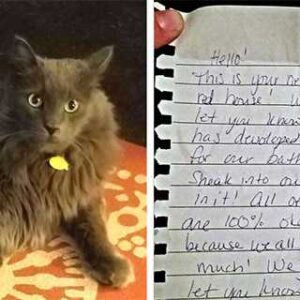 Hello!
This is your ne
red house! W
let you know
has developed
for our bath
Sneak into ou
in it! All o
are 100% ok
because we all
much! We
let you know